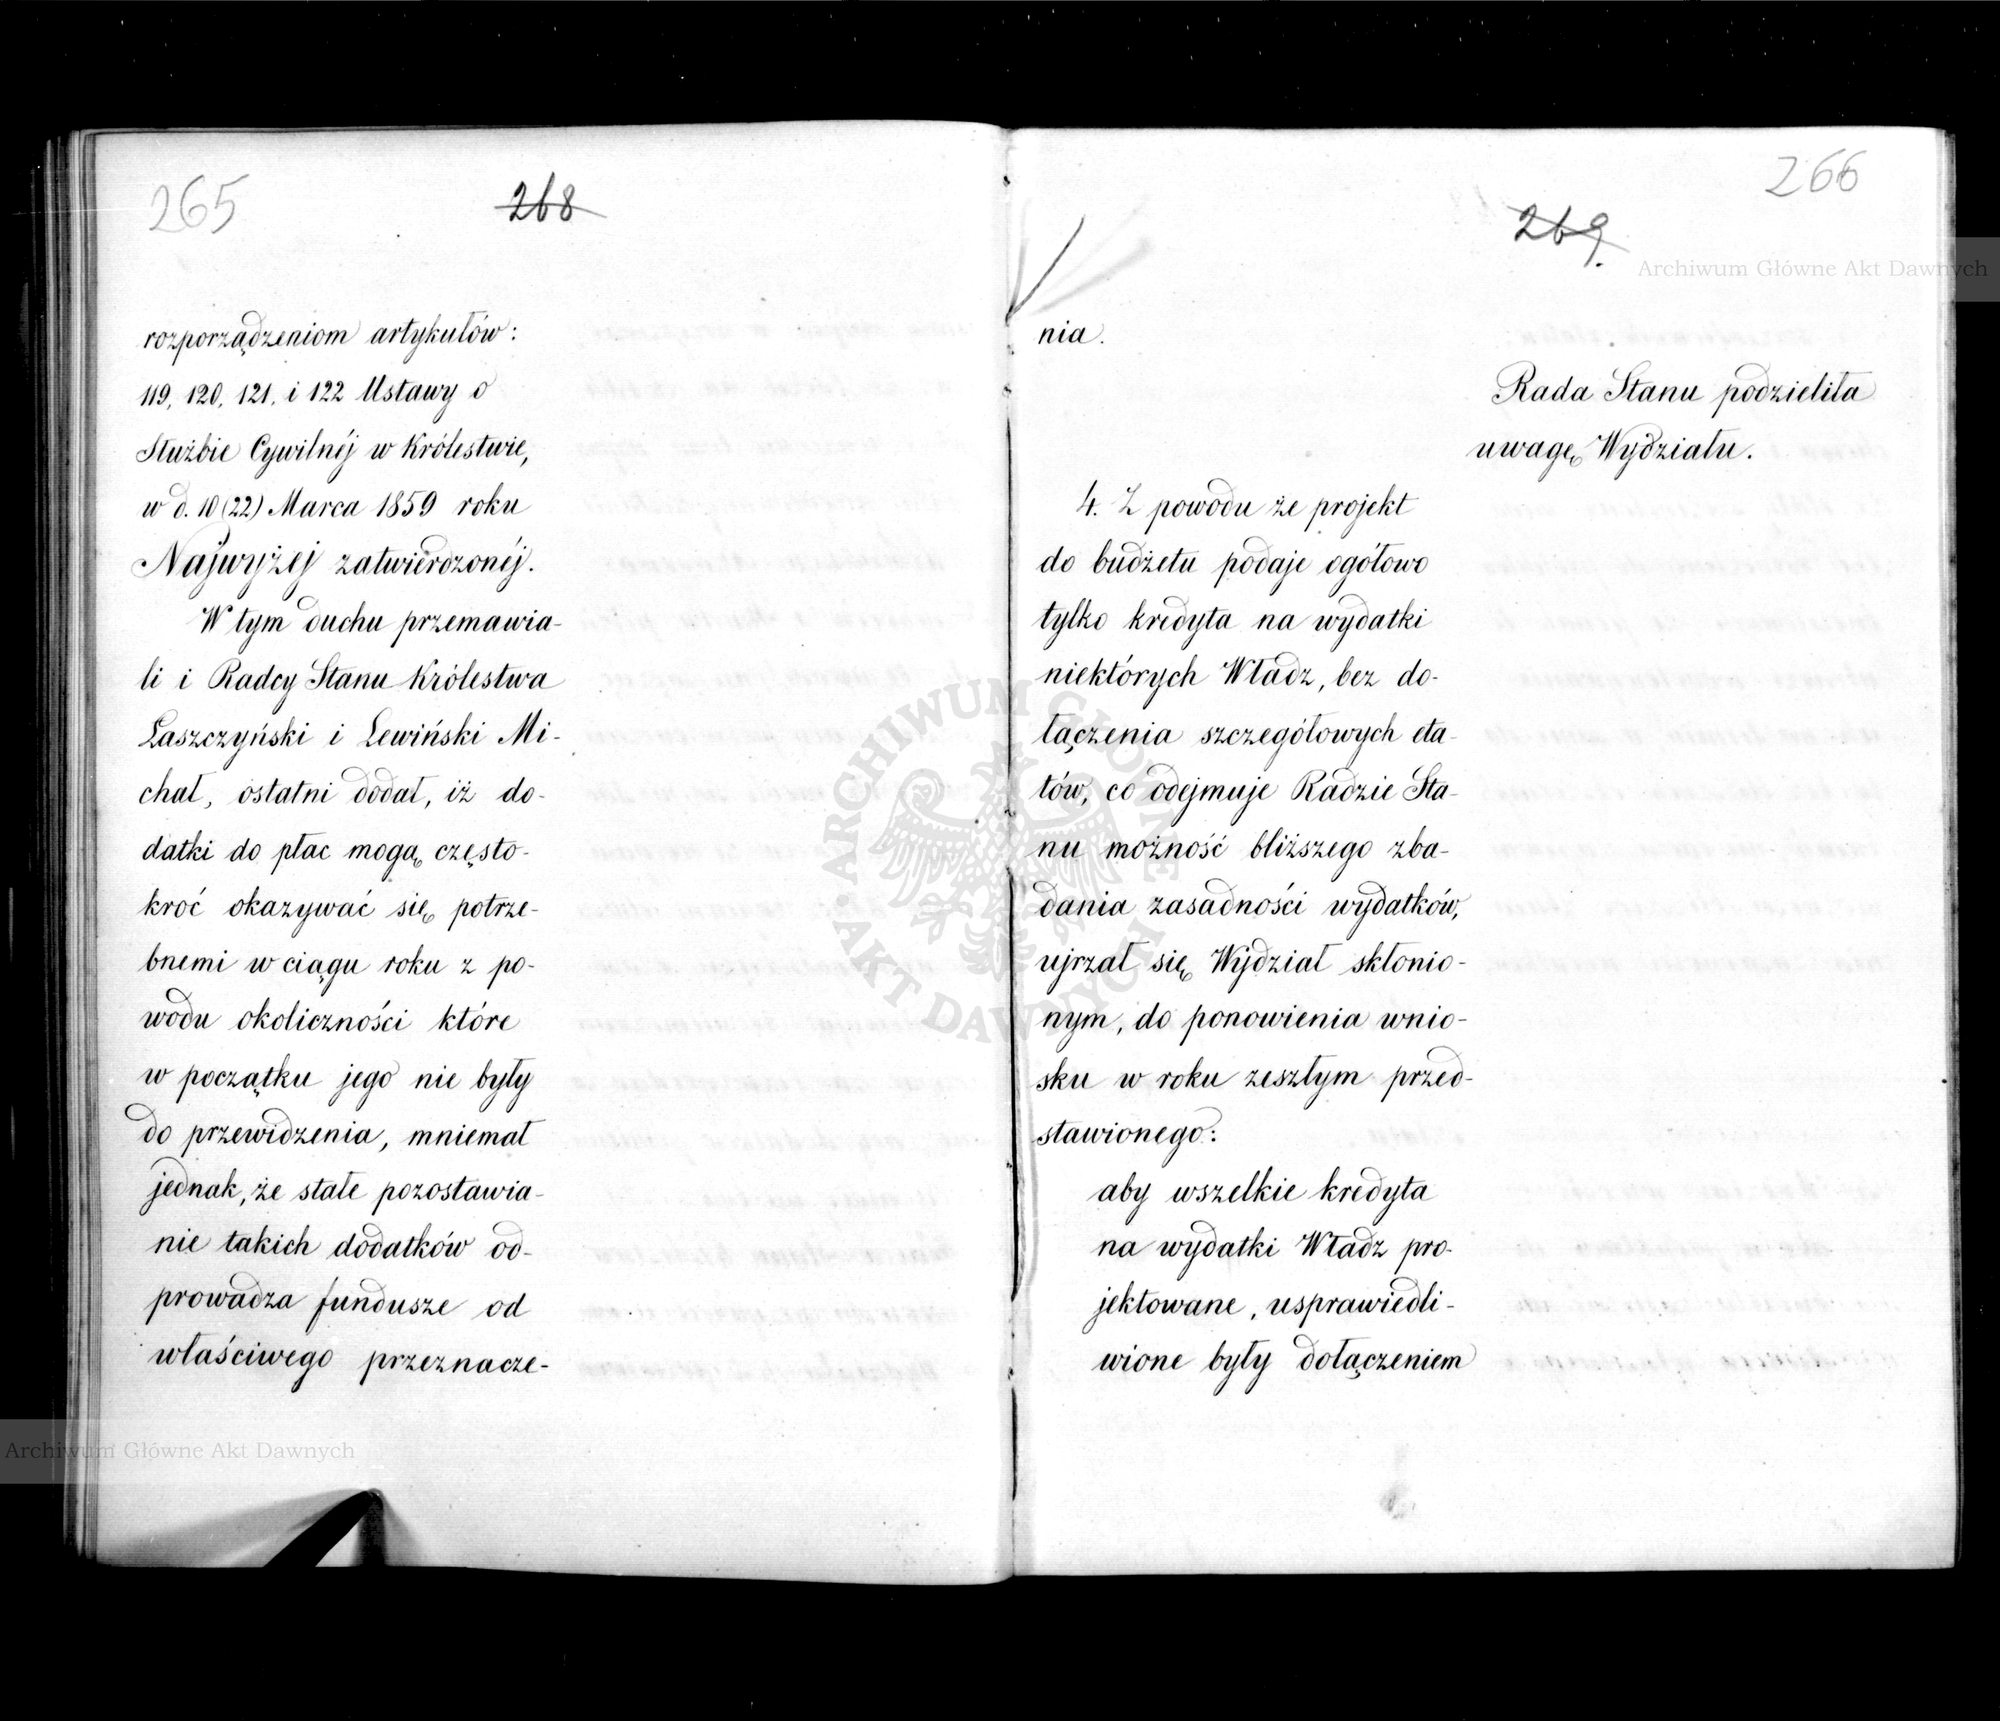 265
268
rozporządzeniom artykułów:
119, 120, 121, i 122 Ustawy o
Służbie Cywilnéj w Królestwie,
w d. 10 (22) Marca 1859 roku
Najwyżej zatwierdzonéj.
W tym duchu przemawia-
li i Radcy Stanu Królestwa
Łaszczyński i Lewiński Mi-
chał, ostatni dodał, iż do-
datki do płac mogą często-
kroć okazywać się potrze-
bnemi w ciągu roku z po-
wodu okoliczności które
w początku jego nie były
do przewidzenia, mniemał
jednak, że stałe pozostawia-
nie takich dodatków od-
prowadza fundusze od
właściwego przeznacze-
266
269.
nia.
Rada Stanu podzieliła
uwagę Wydziału.
4. Z powodu że projekt
do budżetu podaje ogółowo
tylko kredyta na wydatki
niektórych Władz, bez do-
łączenia szczegółowych eta-
tów, co odejmuje Radzie Sta-
nu możność bliższego zba-
dania zasadności wydatków,
ujrzał się Wydział skłonio-
nym, do ponowienia wnio-
sku w roku zeszłym przed-
stawionego:
aby wszelkie kredyta
na wydatki Władz pro-
jektowane, usprawiedli-
wione były dołączeniem
Archiwum Główne Akt Dawnych
Archiwum Główne Akt Dawnych
ARCHIWUM GŁÓWNE AKT DAWNYCH